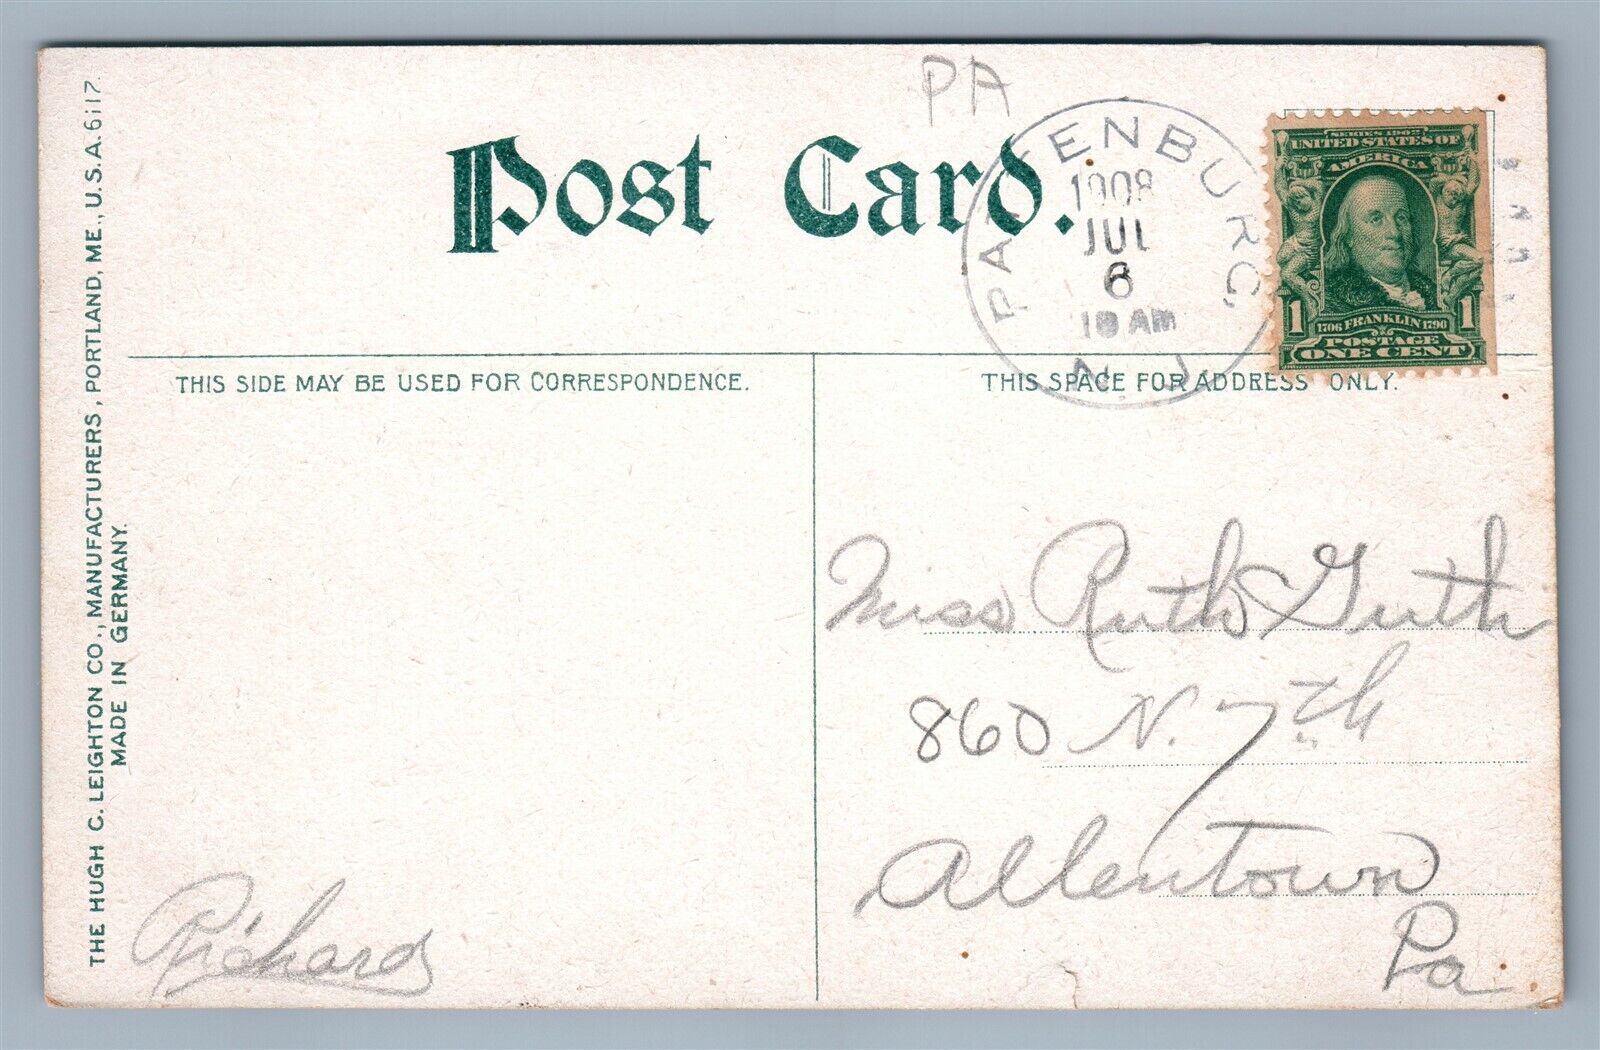 PA
Post Card.
PATTENBURG,
1908
JUL
6
10 AM
N. J.
SERIES 1902
UNITED STATES OF
AMERICA
1 1
1706 FRANKLIN 1790
POSTAGE
ONE CENT
THIS SIDE MAY BE USED FOR CORRESPONDENCE.
THIS SPACE FOR ADDRESS ONLY.
THE HUGH C. LEIGHTON CO., MANUFACTURERS, PORTLAND, ME., U.S.A. 6117.
MADE IN GERMANY.
Miss Ruth Guth
860 N. 7th
Allentown
Pa
Richard